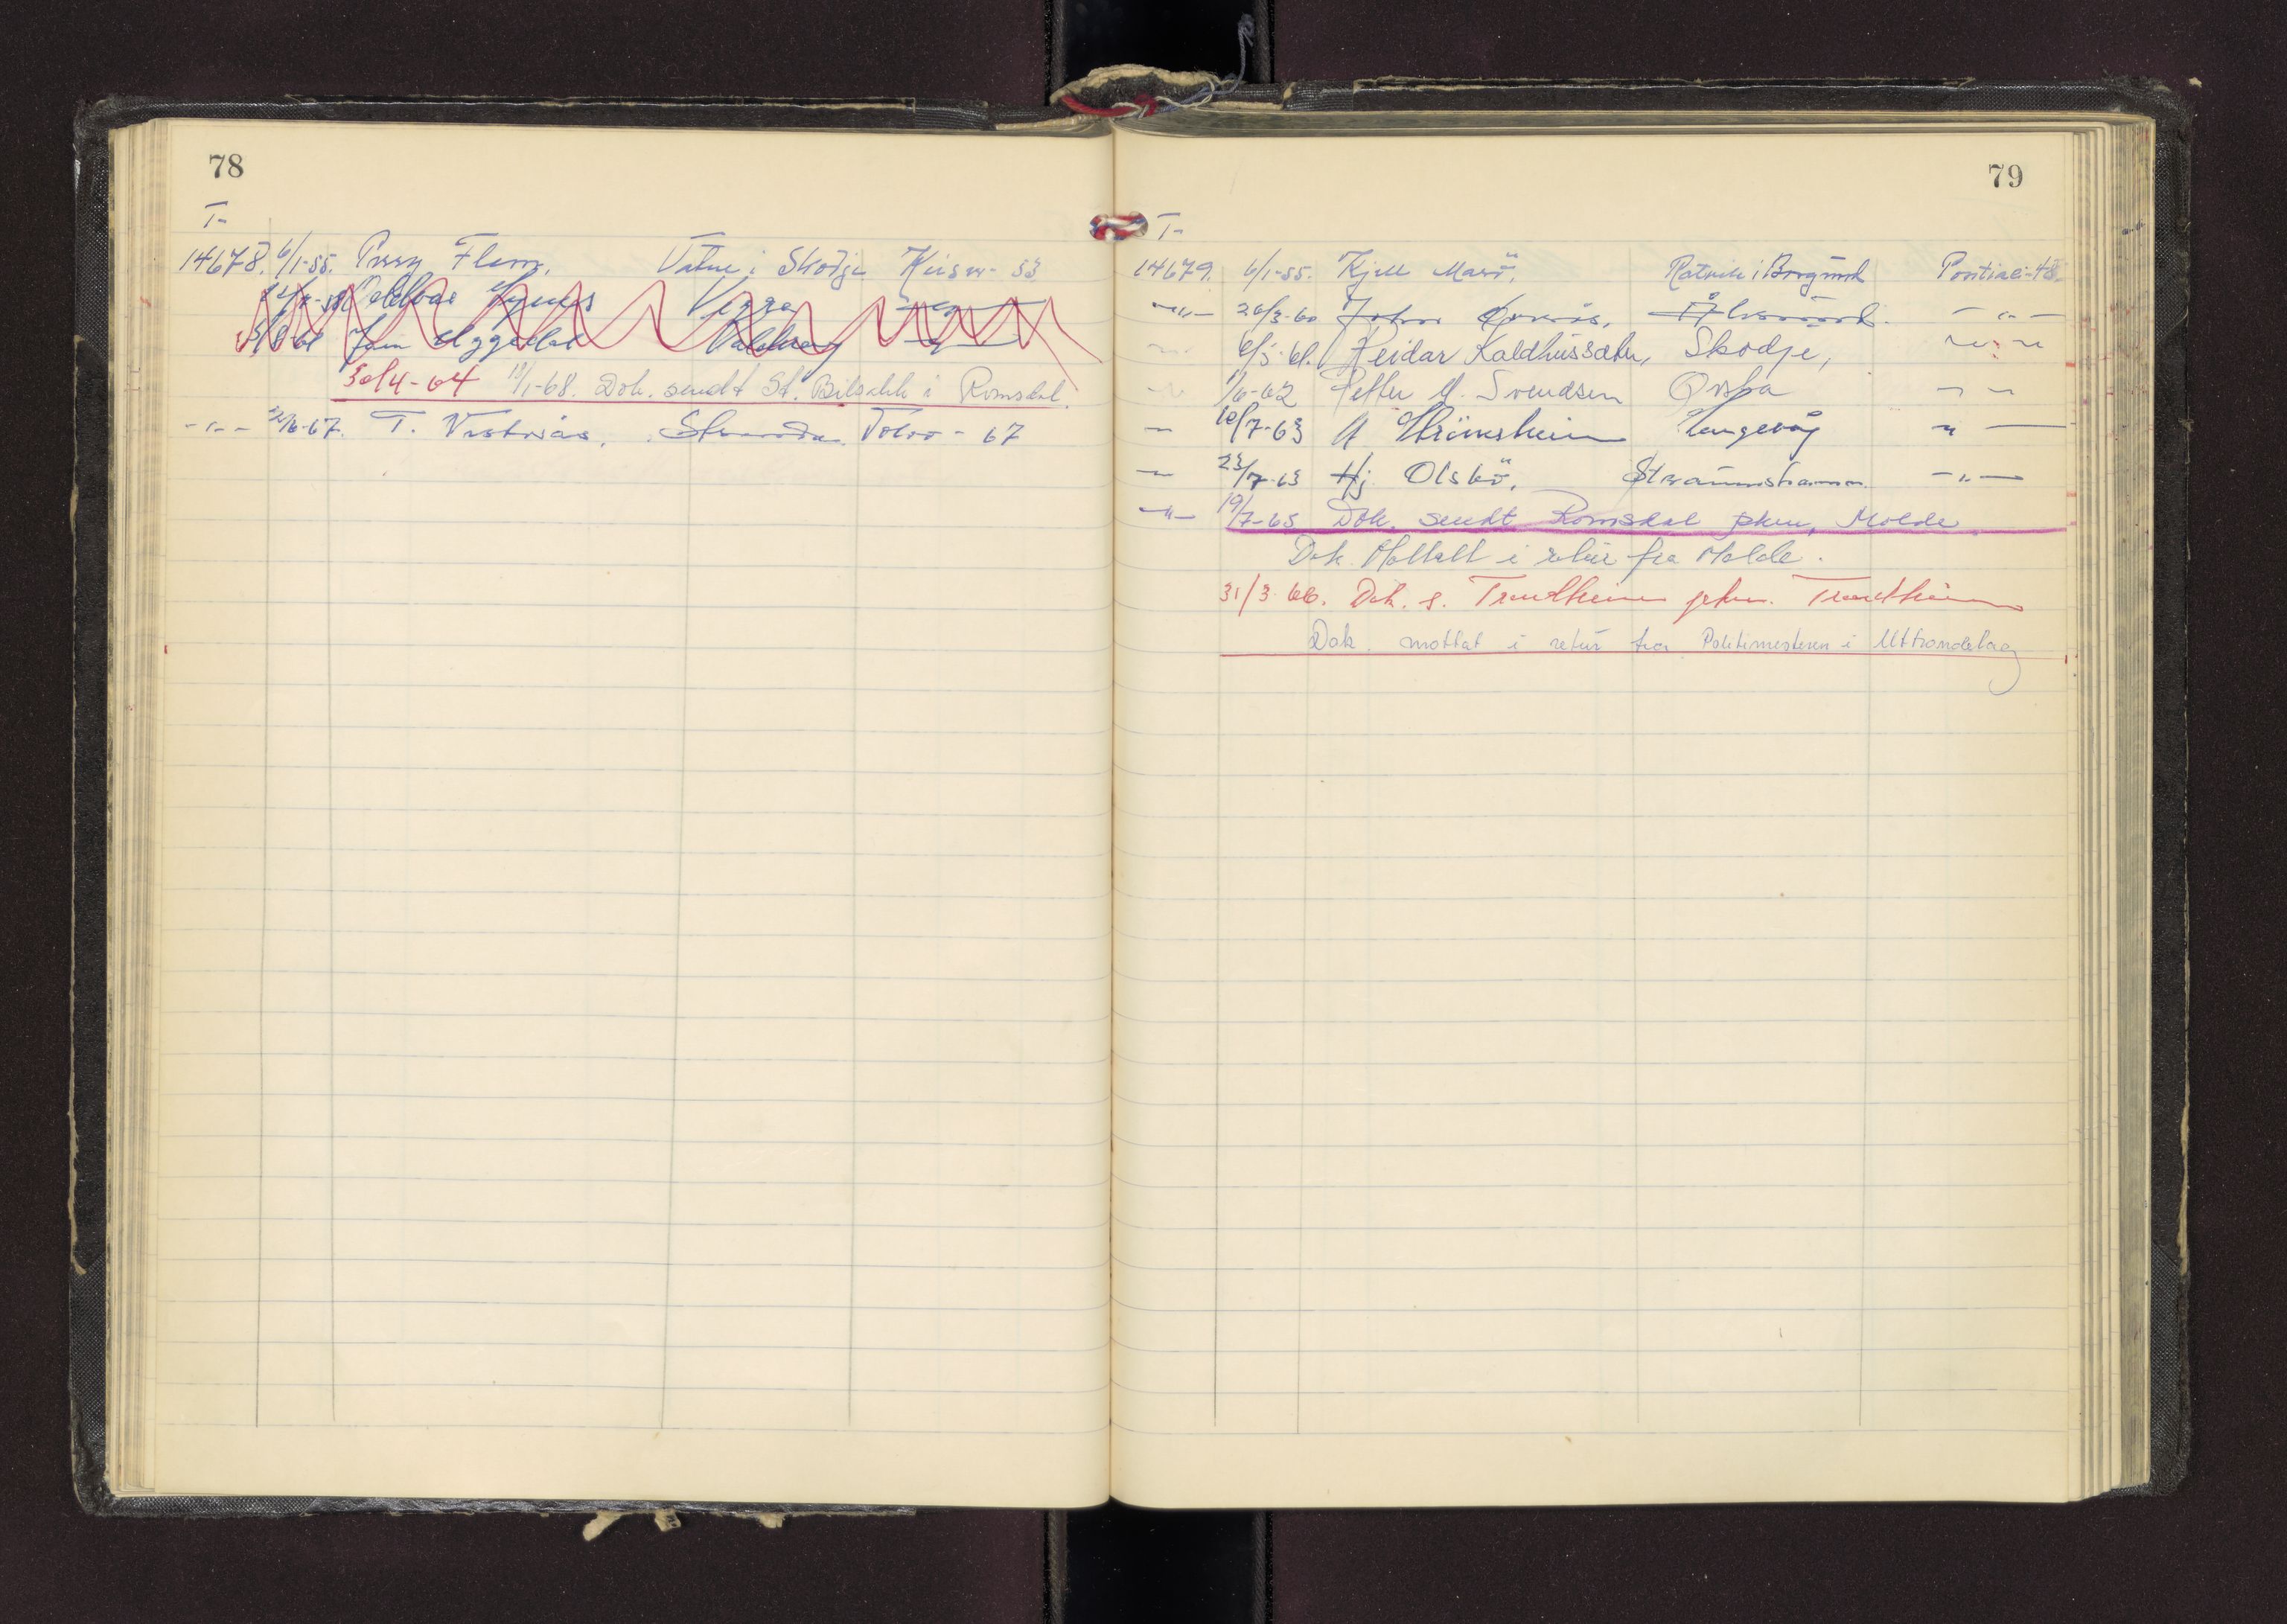 78
T-
14678. 6/1-55. Perry Flem, Vatne i Skodje Keiser- 53
Vigra
5/8-61 Jan Uggedal
30/4-64 18/1-68. Dok. sendt St. Bilsakk i Romsdal.
-"- T. Vestnäs, Stranda Volvo - 67
79
T-
14679. 6/1-55. Kjell Marö, Ratvik i Borgund Pontiac-48
-"- 26/3-60 John Ålesund -"-
6/5-61. Reidar Kaldhussæter, Skodje, -"-
1/6-62 Petter M. Svendsen Ørsta - -
- 10/7-63 A Strömsheim Langevåg " -
- 23/7-63 Hj. Olsbö, Straumshamn -"-
-"- 19/7-65 Dok. sendt Romsdal pkm, Molde
Dok. Mottatt i retur fra Molde.
31/3-66. Dok. s. Trondheim pkm. Trondheim
Dok. mottat i retur fra Politimesteren i Uttrøndelag